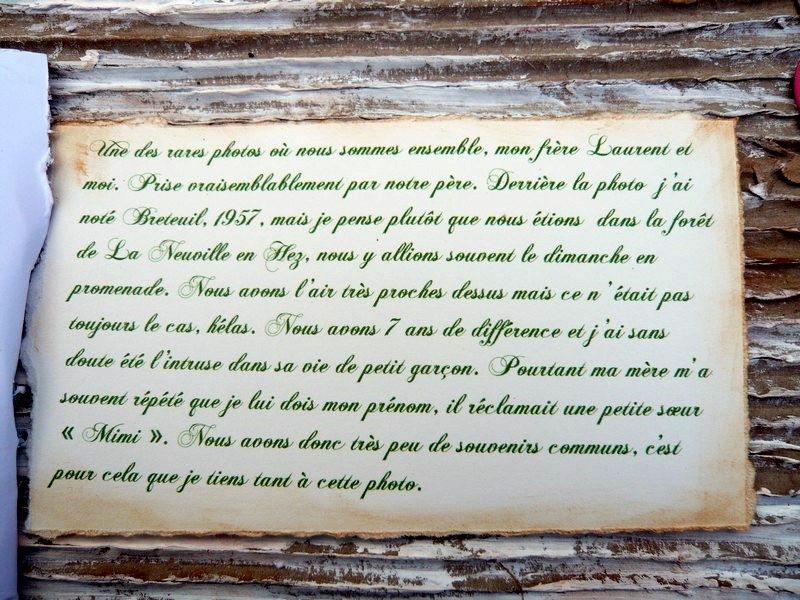 Une des rares photos où nous sommes ensemble, mon frère Laurent et
moi. Prise vraisemblablement par notre père. Derrière la photo j'ai
noté Breteuil, 1957, mais je pense plutôt que nous étions dans la forêt
de La Neuville en Hez, nous y allions souvent le dimanche en
promenade. Nous avons l'air très proches dessus mais ce n'était pas
toujours le cas, hélas. Nous avons 7 ans de différence et j'ai sans
doute été l'intruse dans sa vie de petit garçon. Pourtant ma mère m'a
souvent répété que je lui dois mon prénom, il réclamait une petite sœur
« Mimi ». Nous avons donc très peu de souvenirs communs, c'est
pour cela que je tiens tant à cette photo.